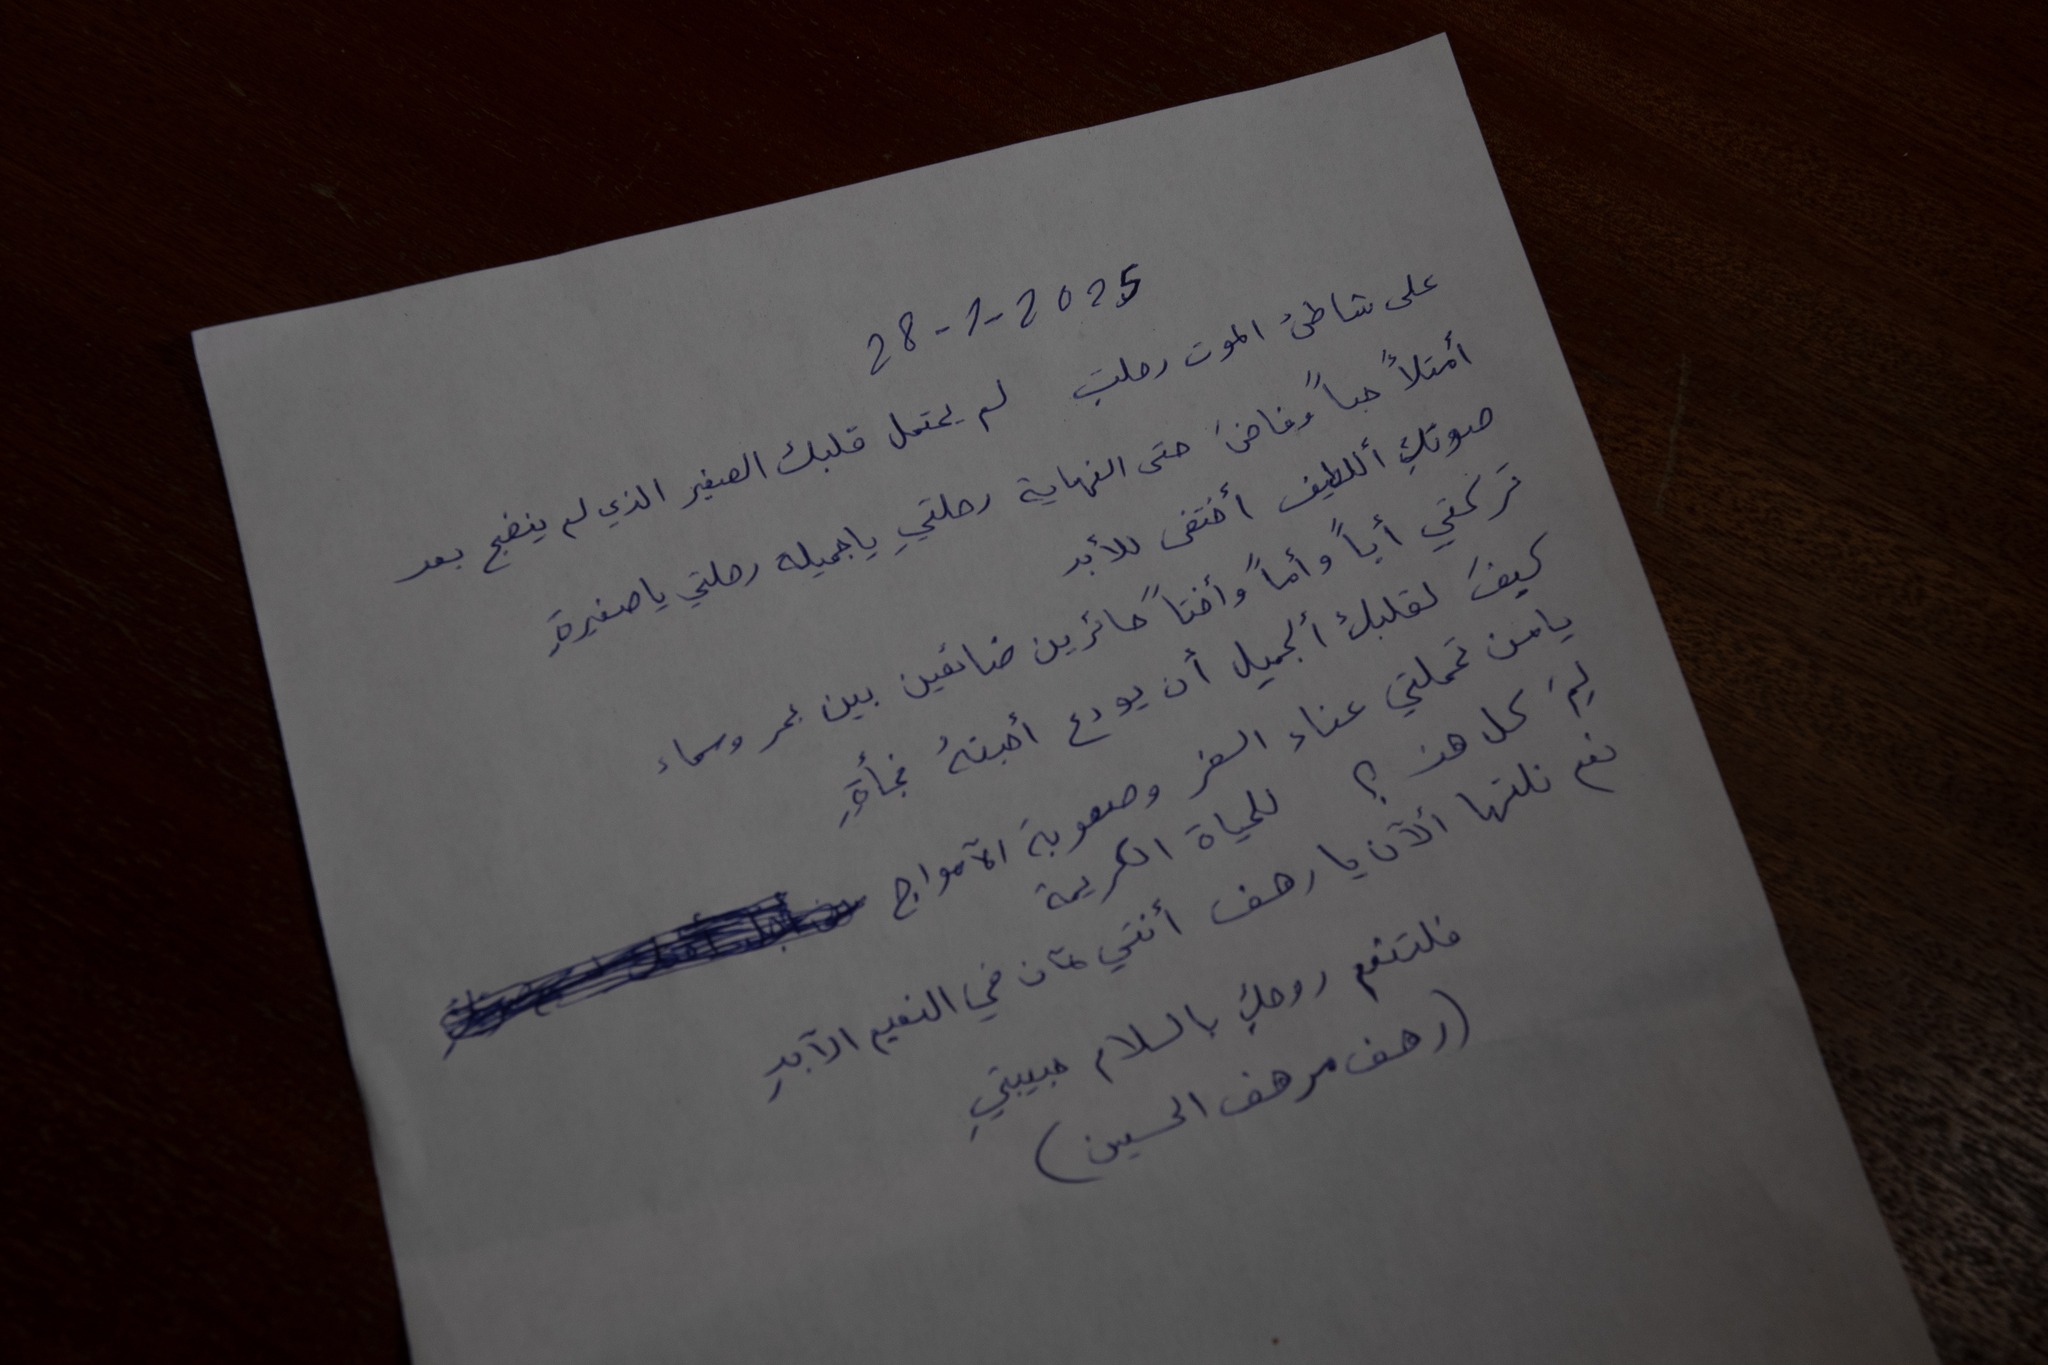 28-1-2025
على شاطئ الموت رحلتِ لم يحتمل قلبك الصغير الذي لم ينضج بعد
أمتلأ حباً وفاضَ حتى النهاية رحلتيِ ياجميله رحلتي ياصغيرةِ
صوتكِ أللطيف أختفى للأبد
تركتي أباً وأماً وأختاً حائرين ضائعين بين بحر وسماء
كيفَ لقلبكِ ألجميل أن يودع أحبتهُ فجأةِ
يامن تحملتي عناء السفر وصعوبة الآمواج
لِمَ كل هذ؟ للحياة الكريمة
نعم نلتها ألآن يا رهف أنتي ألآن في النعيم الآبدِ
فلتنعم روحكِ بالسلام حبيبتيِ
(رهف مرهف الحسين)